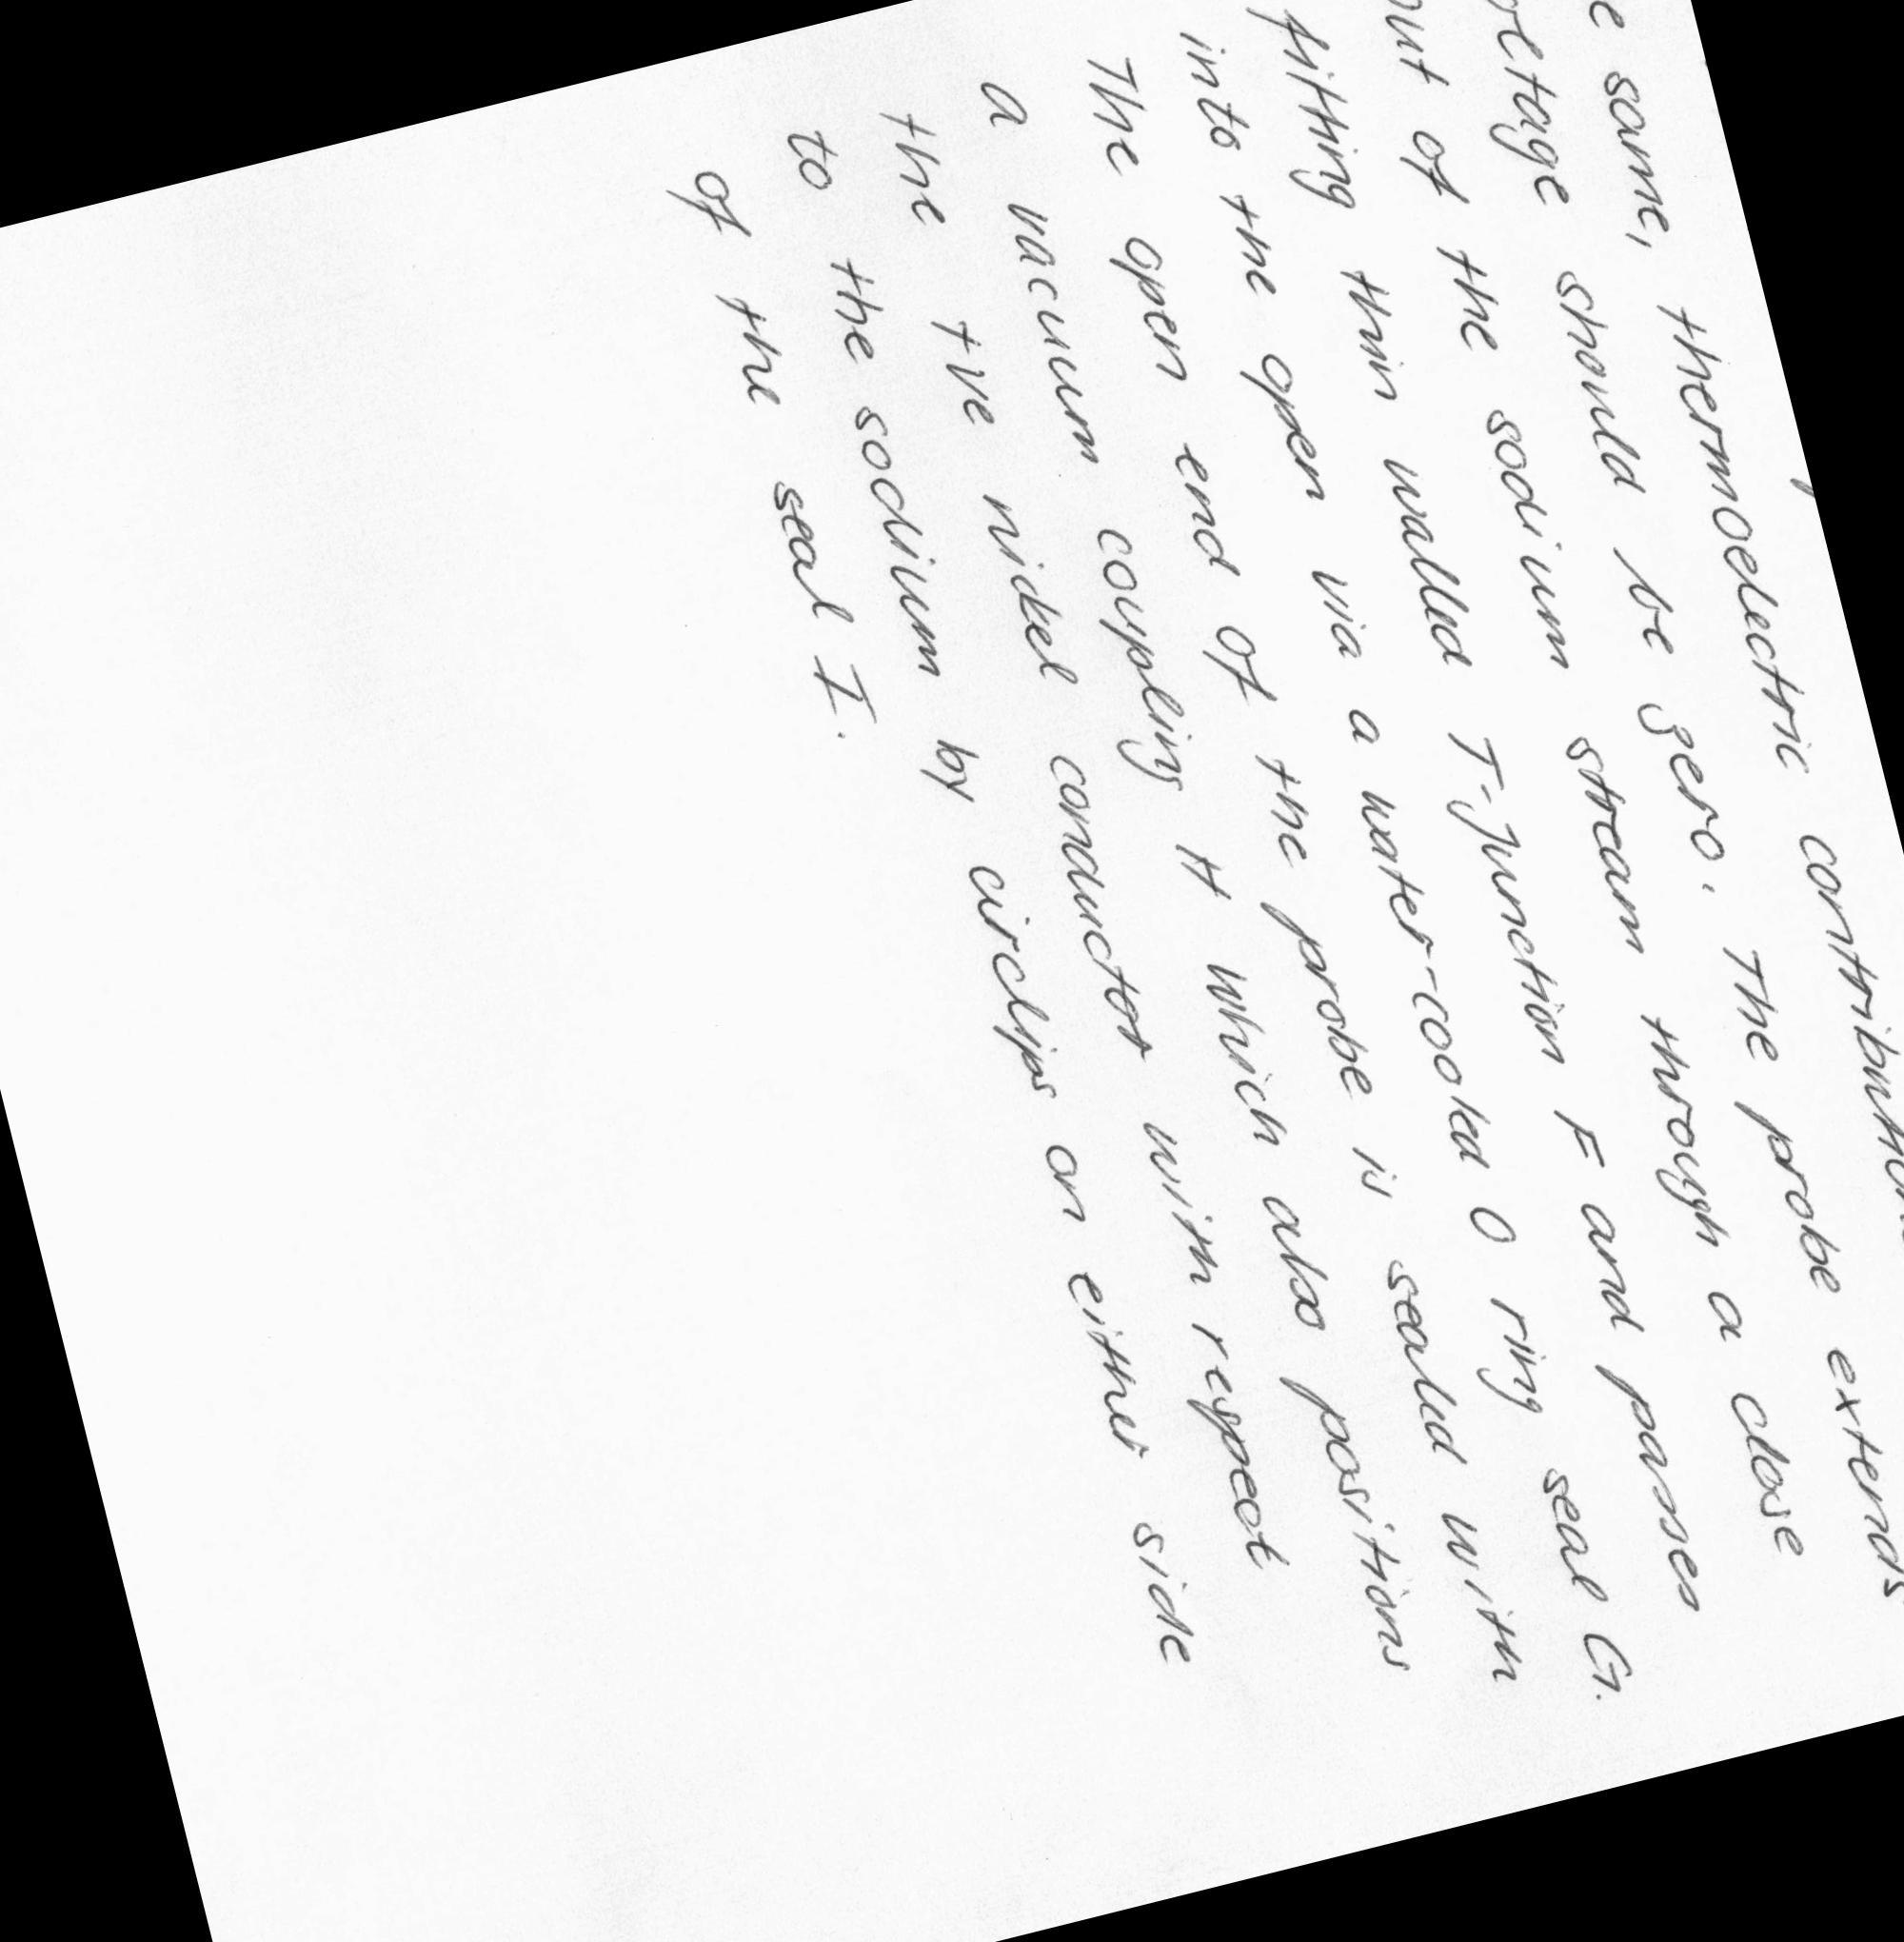 same, thermoelectric
should be zero. The probe extends
of the sodium stream through a close
fitting thin walled T-Junction F and passes
into the open via a water-cooled O ring seal G.
The open end of the probe is sealed with
a vacuum coupling H which also positions
the +ve nickel conductor with respect
to the sodium by circlips on either side
of the seal I.